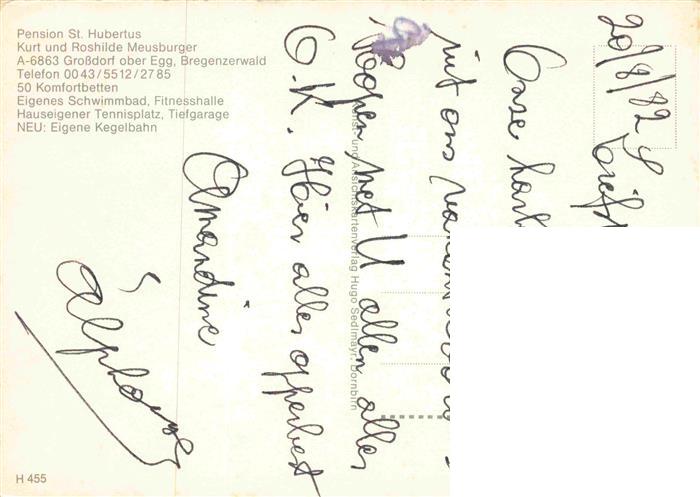 Pension St. Hubertus
Kurt und Roshilde Meusburger
A-6863 Großdorf ober Egg, Bregenzerwald
Telefon 0043/5512/2785
50 Komfortbetten
Eigenes Schwimmbad, Fitnesshalle
Hauseigener Tennisplatz, Tiefgarage
NEU: Eigene Kegelbahn
20/8/82
Onze
uit ons
Hopen met U allen alles
O.K. Hier alles opperbest
Amandine
Alphonse
Kunst- und Ansichtskartenverlag Hugo Sedlmayr, Dornbirn
H 455